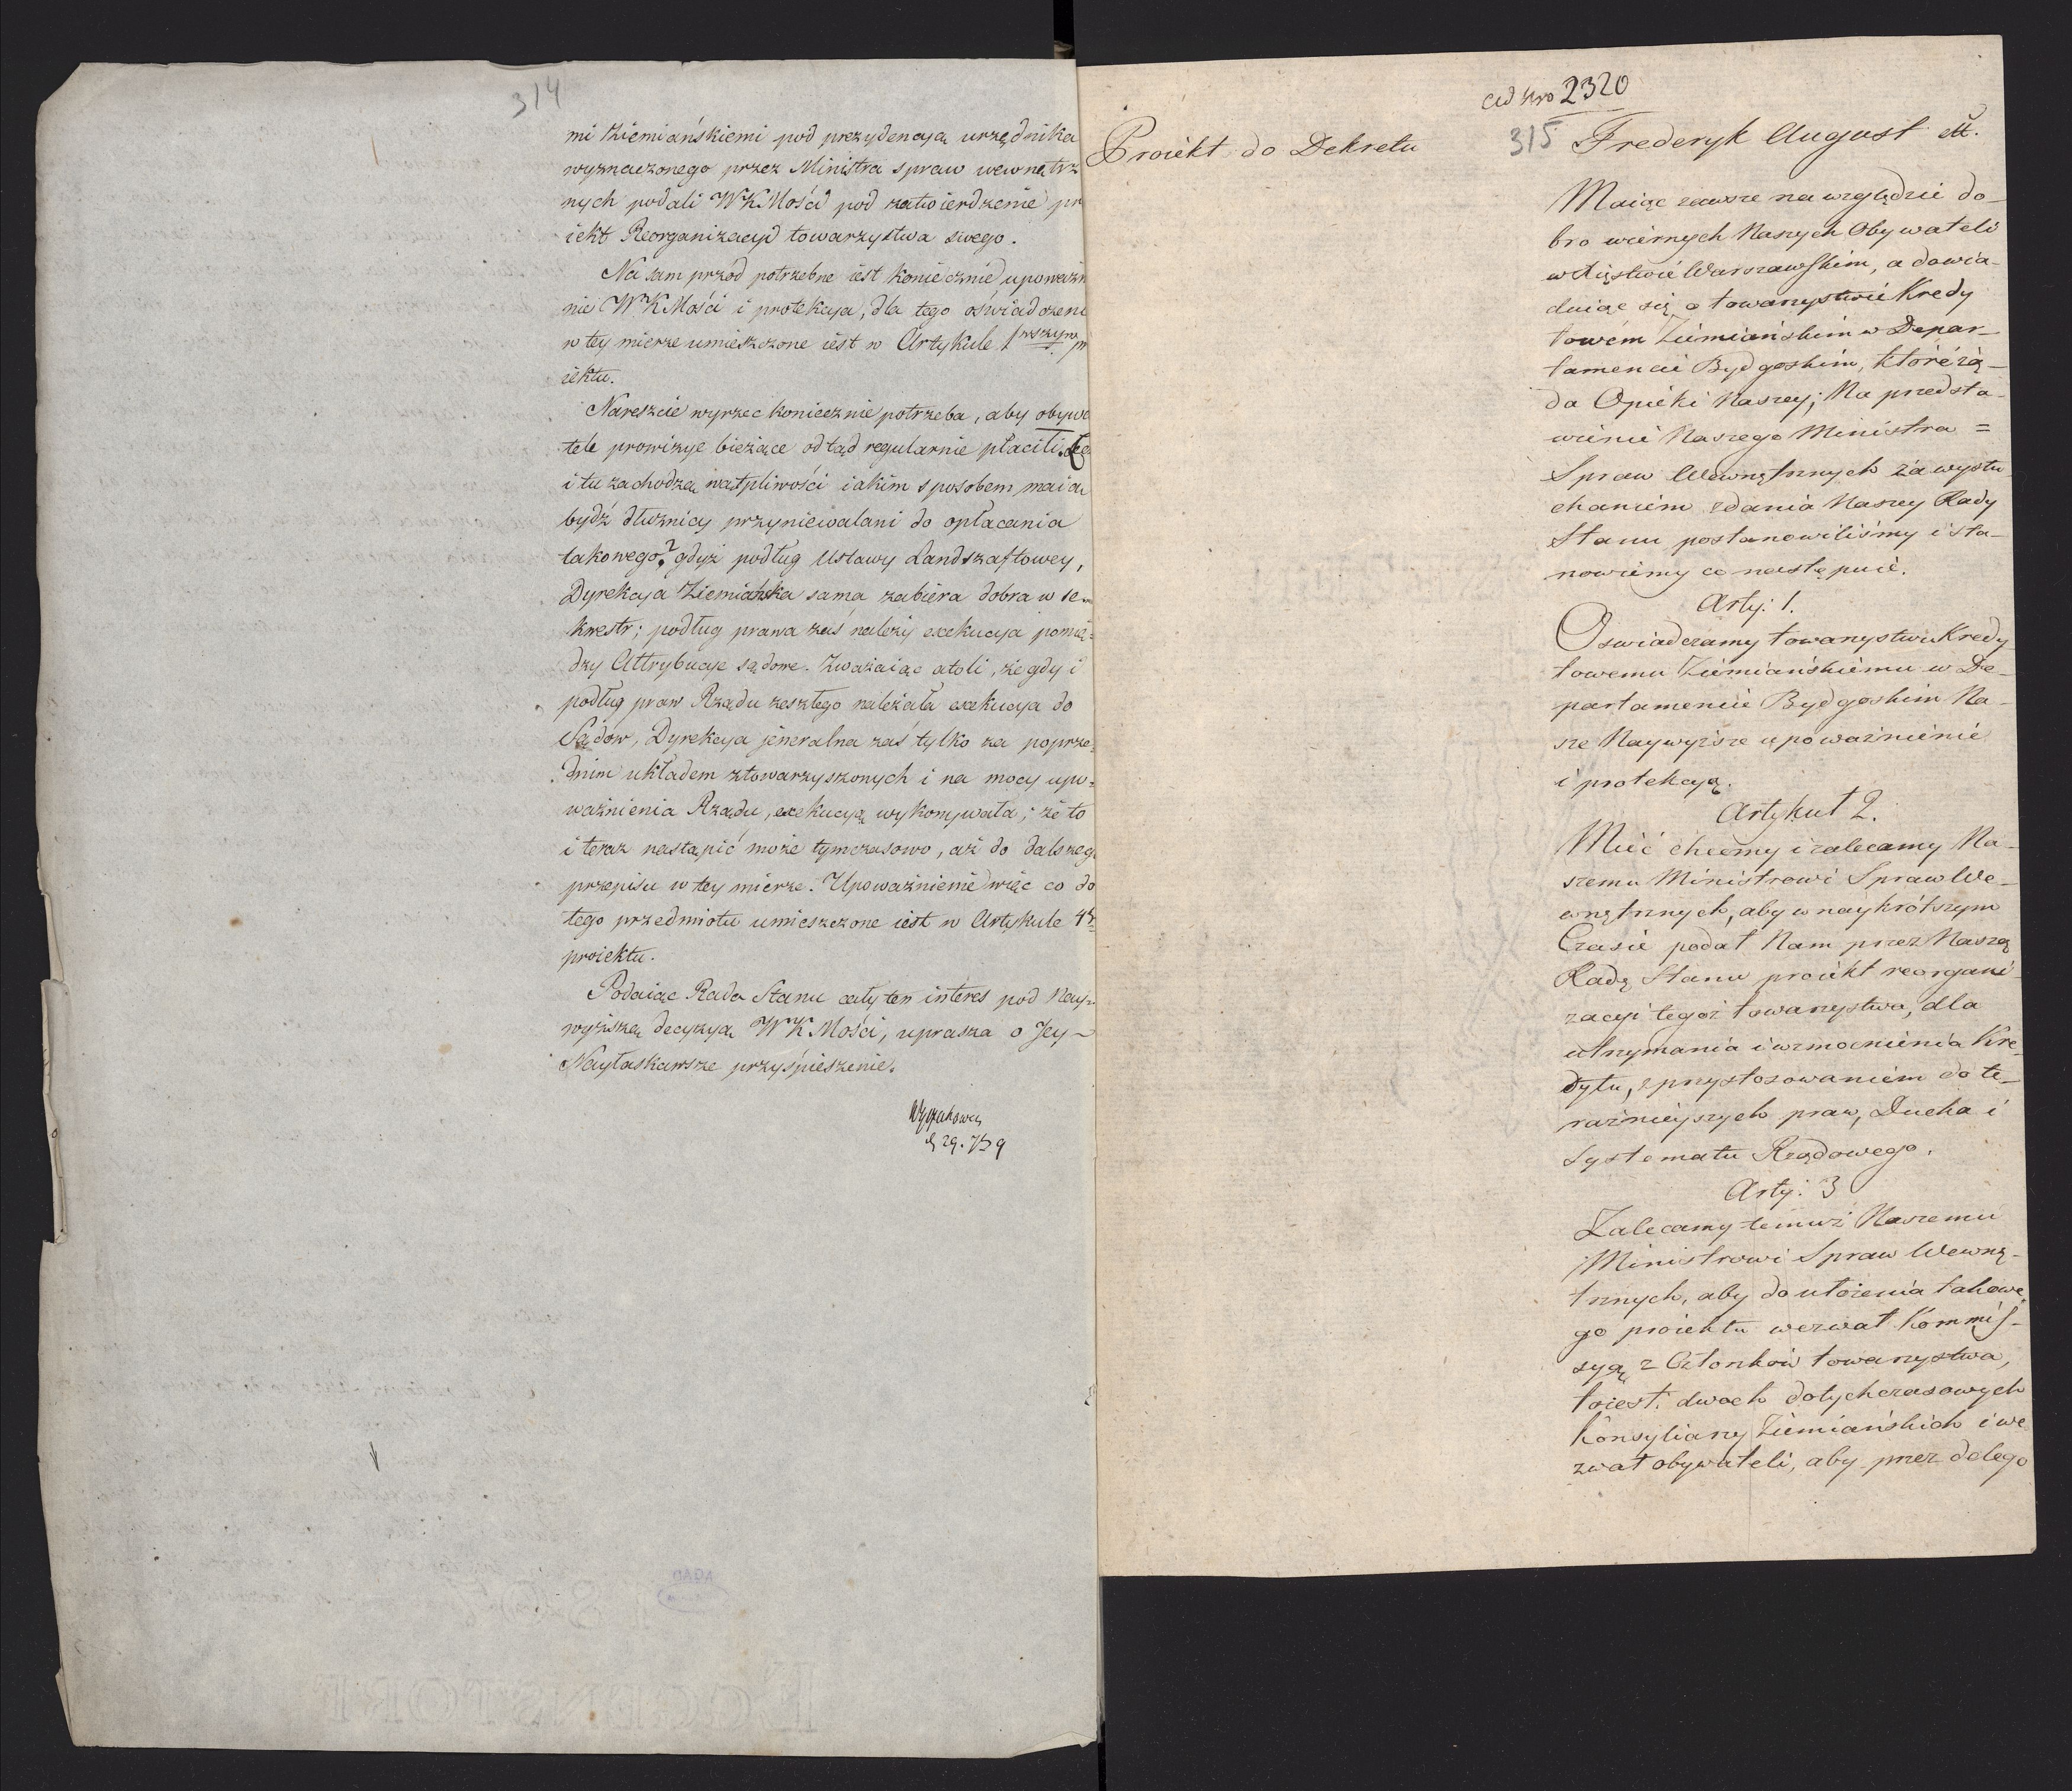 314
mi Ziemiańskiemi pod prezydencyą urzędnika
wyznaczonego przez Ministra spraw wewnętrz
nych podali WKMości pod zatwierdzenie pr
iekt Reorganizacyi towarzystwa swego.
Na sam przód potrzebne iest koniecznie upoważn
nie WKMości i protekcya, dla tego oświadczeni
w tey mierze umieszczone iest w Artykule 1wszym pr
iektu.
Nareszcie wyrzec koniecznie potrzeba, aby obywa
tele prowizye bieżące odtąd regularnie płacili.
i tu zachodzą wątpliwości iakim sposobem maią
bydź dłużnicy przyniewalani do opłacania
takowego? gdyż podług Ustawy Landszaftowey,
Dyrekcya Ziemiańska sama zabiera dobra w se-
kwestr; podług prawa zaś należy exekucya pomię-
dzy Attrybucye sądowe. Zważaiąc atoli, że gdy i
podług praw Rządu zeszłego należała exekucya do
Sądow, Dyrekcya jeneralna zaś tylko za poprze-
dnim układem ztowarzyszonych i na mocy upo-
ważnienia Rządu, exekucyą wykonywała; że to
i teraz nastąpić może tymczasowo, aż do dalszeg
przepisu w tey mierze. Upoważnienie więc co do
tego przedmiotu umieszczone iest w Artykule 4
proiektu.
Podaiąc Rada Stanu cały ten interes pod Nay-
wyższą decyzyą WKMości, uprasza o Jey
Nayłaskawsze przyśpieszenie.
29. 7br 9
AGAD
Proiekt do Dekretu
ad Nro 2320
315
Frederyk August ett.
Maiąc zawsze na względzie do-
bro wiernych Naszych Obywateli
w Xięstwie Warszawskim, a dowia-
duiąc się o towarzystwie Kredy
towém Ziemiańskim w Depar-
tamencie Bydgoskim, które żą-
da Opieki Naszey; Na przedsta-
wienie Naszego Ministra =
Spraw Wewnętrznych za wysłu
chaniem zdania Naszey Rady
Stanu postanowiliśmy i sta-
nowiemy co następuie.
Arty: 1.
Oswiadczamy towarzystwu Kredy
towemu Ziemiańskiemu w De-
partamencie Bydgoskim Na-
sze Naywyższe upoważnienie
i protekcyą.
Artykuł 2.
Mieć chcemy i zalecamy Na-
szemu Ministrowi Spraw We-
wnętrznych, aby w naykrótszym
Czasie podał Nam przez Naszą
Radę Stanu proiekt reorgani-
zacyi tegoż towarzystwa, dla
utrzymania i wzmocnienia Kre-
dytu, z przystosowaniem do te-
raźnieyszych praw, Ducha i
Systematu Rządowego.
Arty: 3
Zalecamy temuż Naszemu
Ministrowi Spraw Wewnę-
trznych, aby do ułożenia takowe
go proiektu wezwał Kommis-
syą z Członków towarzystwa,
toiest: dwoch dotychczasowych
Konsyliarzy Ziemiańskich i we
zwał obywateli, aby przez delego